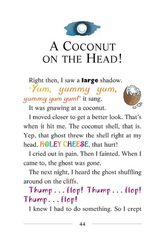 A COCONUT
ON THE HEAD!
Right then, I saw a large shadow.
"Yum, yummy yum,
yummy yum yum!" it sang.
It was gnawing at a coconut.
I moved closer to get a better look. That's
when it hit me. The coconut shell, that is.
Yep, that ghost threw the shell right at my
head. HOLEY CHEESE, that hurt!
I cried out in pain. Then I fainted. When I
came to, the ghost was gone.
The next night, I heard the ghost shuffling
around on the cliffs.
Thump . . . flop! Thump . . . flop!
Thump . . . flop!
I knew I had to do something. So I crept
44